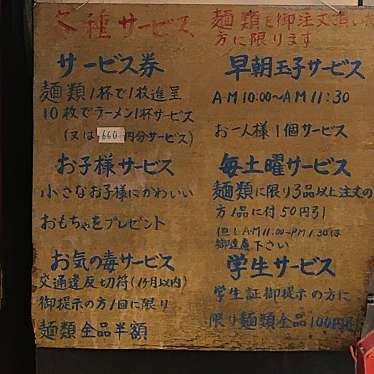 各種サービス
麺類を御注文頂いた
方に限ります
サービス券
麺類1杯で1枚進呈
10枚でラーメン1杯サービス
(又は660円分サービス)
お子様サービス
小さなお子様にかわいい
おもちゃをプレゼント
お気の毒サービス
交通違反切符(1ヶ月以内)
御提示の方1回に限り
麺類全品半額
早朝玉子サービス
A・M 10:00~A・M 11:30
お一人様1個サービス
毎土曜サービス
麺類に限り3品以上注文の
方1品に付50円引
但しA・M 11:00~P・M 1:30は
御遠慮下さい
学生サービス
学生証御提示の方に
限り麺類全品100円